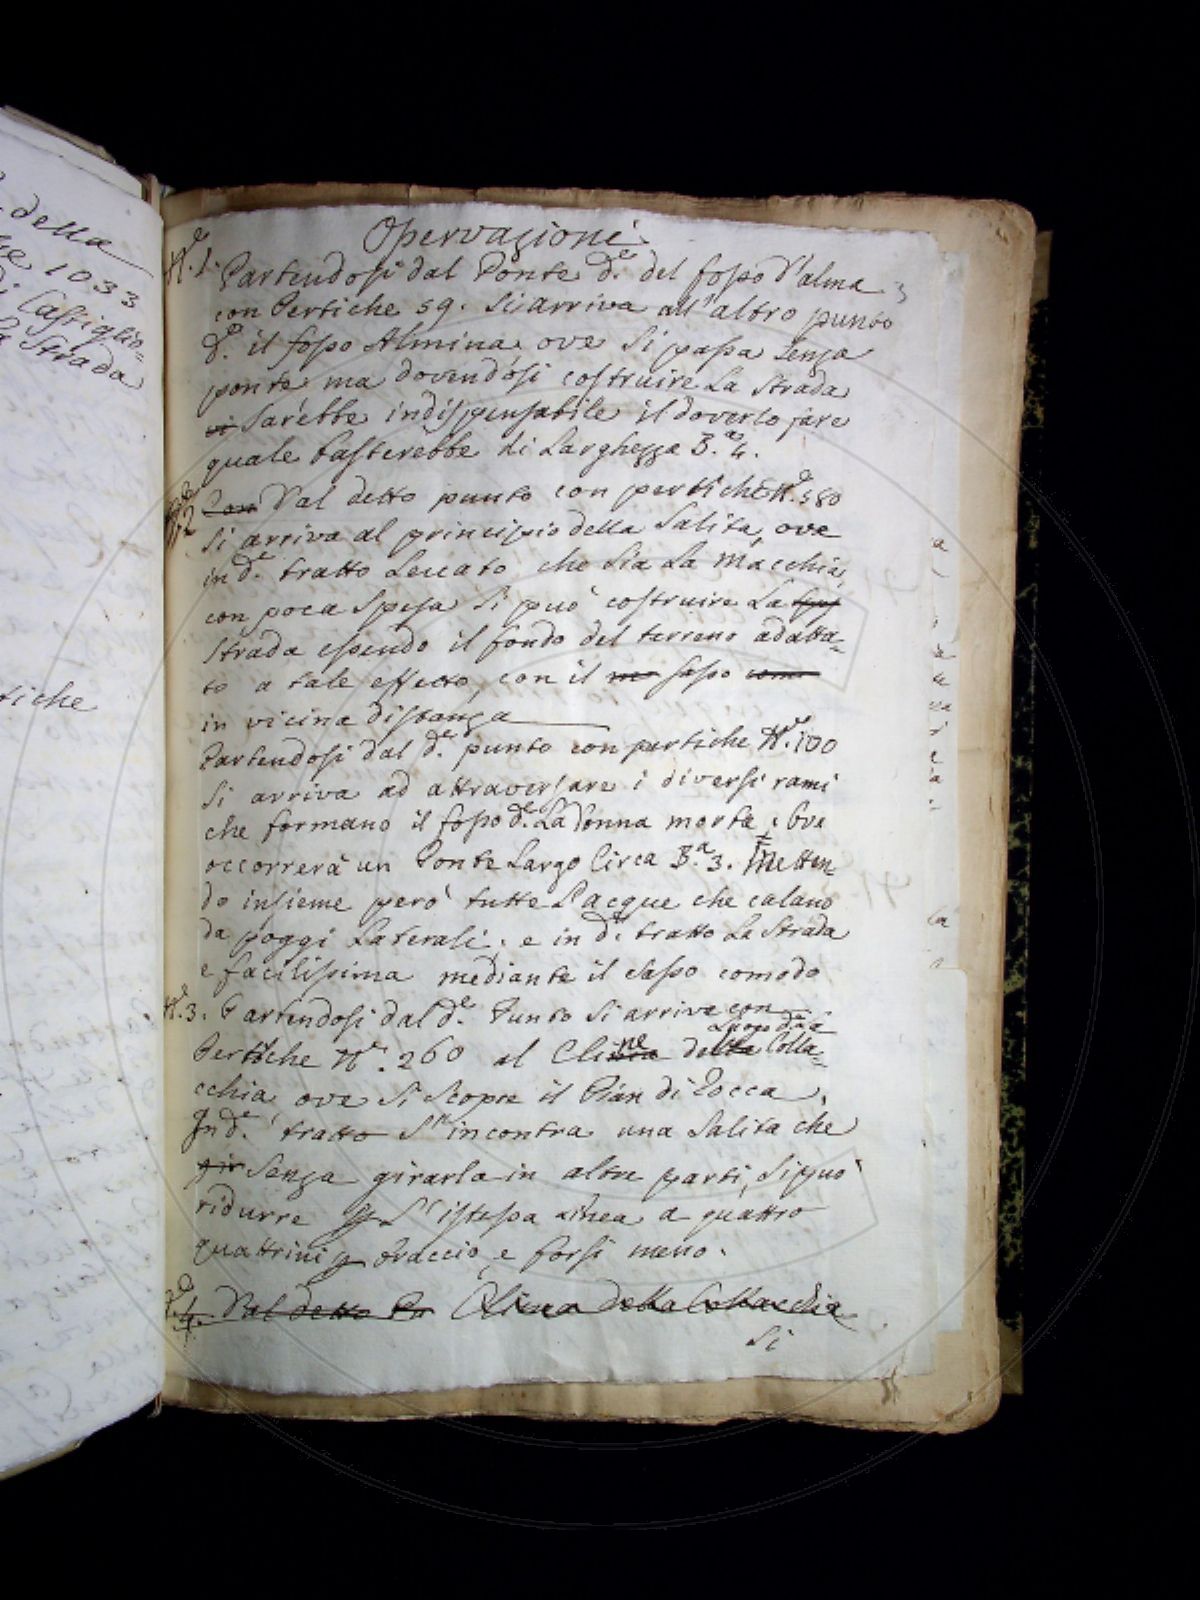 della
1033
di Castiglio=
Strada
tiche
Osservazioni
N.e 1. Partendosi dal Ponte d.e del fosso d'alma
con Pertiche 59. si arriva all'altro punto
d.e il fosso Almina ove si passa senza
ponte ma dovendosi costruire la Strada
vi sarebbe indispensabile il doverlo fare
quale basterebbe di Larghezza B.a 4.
2 Con Dal detto punto con pertiche N.e 580
si arriva al principio della Salita, ove
in d.e tratto Leccato che sia La Macchia,
con poca spesa si può costruire La spes
Strada essendo il fondo del terreno adatta=
to a tale effetto, con il sasso como
in vicina distanza
Partendosi dal d.e punto con pertiche N.e 100
si arriva ad attraversare i diversi rami
che formano il fosso d.e La donna morta, ove
occorrerà un Ponte Largo Circa B.a 3. Metten=
do insieme però tutte L'acque che calano
da poggi Laterali, e in d.e tratto La Strada
e facilissima mediante il sasso comodo
N.e 3. Partendosi dal d.e Punto si arriva con
Luogo d.a
Pertiche N.e 260 al Cline della Colla=
cchia ove si scopre il Pian di Rocca,
In d.e tratto s'incontra una salita che
gir senza girarla in altre parti, si può
ridurre p L'istessa Linea a quattro
quattrini p braccio, e forsi meno.
4. Dal detto Pu Clina della Collacchia
si